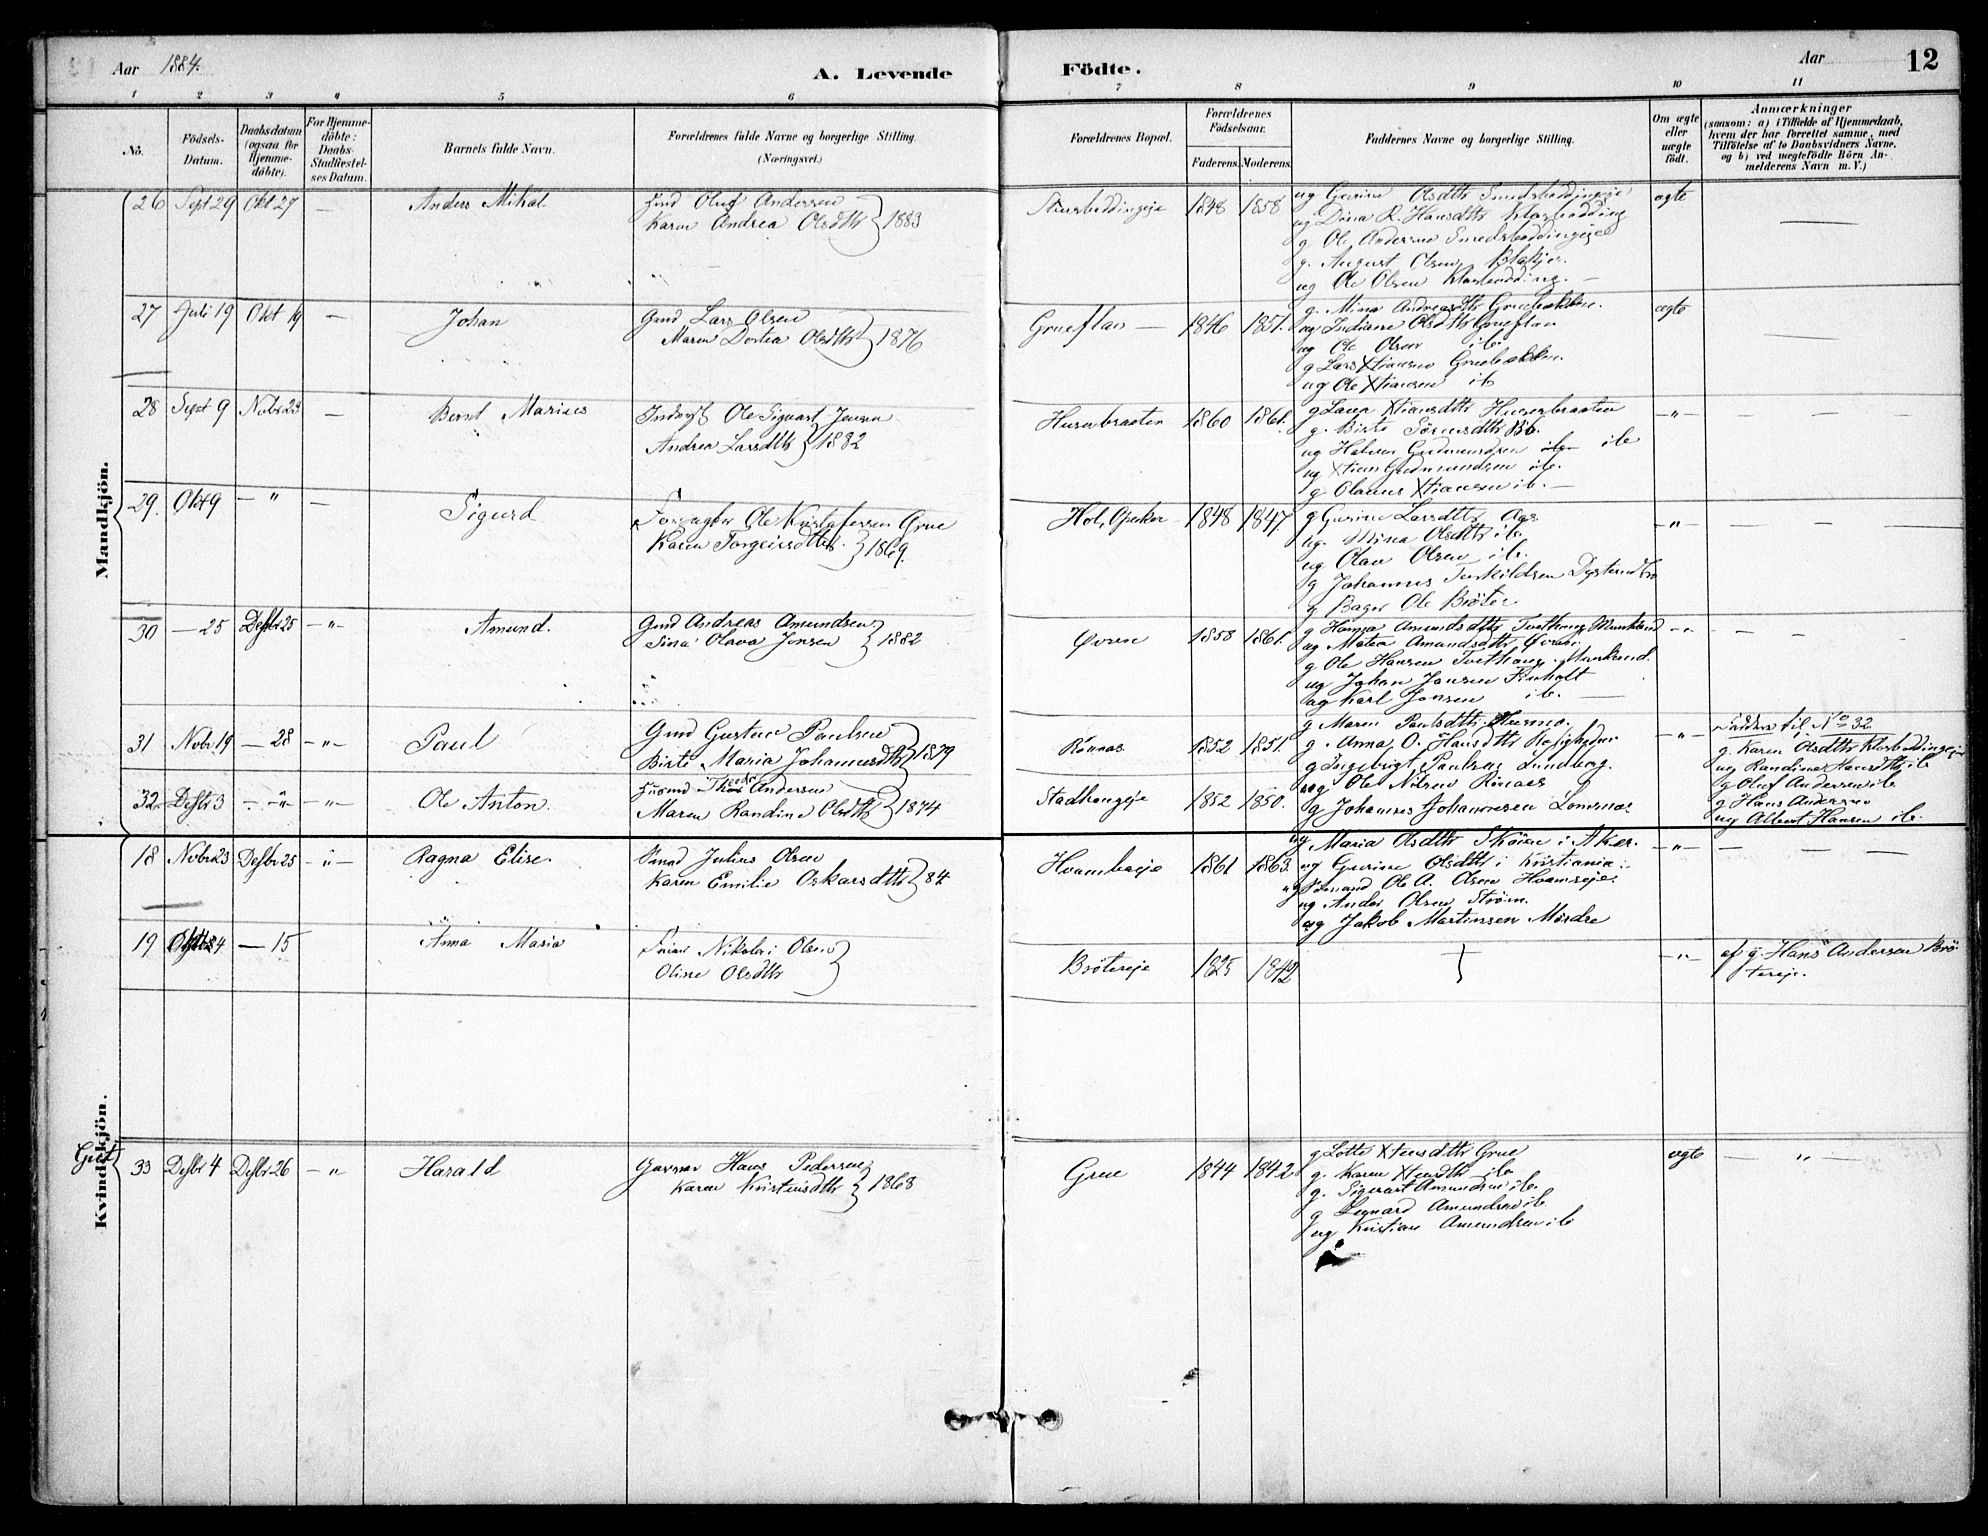 Aar 1884.
A. Levende Födte.
Aar
12
1 2 3 4 5 6 7 8 9 10 11
No.
Födsels-Datum.
Daabsdatum (ogsaa for Hjemme-döbte).
For Hjemme-döbte: Daabs-Stadfæstel-ses Datum.
Barnets fulde Navn.
Forældrenes fulde Navne og borgerlige Stilling. (Næringsvei.)
Forældrenes Bopæl.
Forældrenes Födselsaar.
Faderens. Moderens.
Faddernes Navne og borgerlige Stilling.
Om ægte eller uægte födt.
Anmærkninger
(saasom: a) i Tilfælde af Hjemmedaab, hvem der har forrettet samme, med Tilföielse af to Daabsvidners Navne, og b) ved uægtefödte Börn An-melderens Navn m. V.)
Mandkjön.
26 Sept 29 Okt 27 — Anders Mikal
Oluf Andersen
Karen Andrea Olsdtr } 1883
1848 1858
ug Gurine Olsdtr Smedsbøddingeje
ug Dina R. Hansdtr Klosbødding
g Ole Andersen Smedsbøddingeje
g. August Olsen
ug Ole Olsen Klosbødding. —
ægte —
27 Juli 19 Okt 19 — Johan
Gmd Lars Olsen
Maren Dortea Olsdtr } 1876
Grueflan — 1846 1851.
g. Mina Andreasdtr Gruebakken.
ug Indiane Olsdtr Grueflan
ug Ole Olsen ib.
g Lars Xtiansen Gruebakken.
ug Ole Xtiansen ib
ægte —
28 Sept 9 Novbr 23 — Bernt Marius
Inderst Ole Sigvart Jensen
Andrea Larsdtr } 1882
Huserbraaten 1860 1861.
g Laura Xtiansdtr Huserbraaten
g. Birte Sörensdtr ib.
ug Halvor Gudmundsen ib
ug Xtian Gudmundsen ib.
g Olaus Xtiansen ib. —
—"— — — —
29. Okt 9 — " — Sigurd
Ole Kristofersen Grue
Karen Torgeirsdtr. } 1869.
Hol, 1848 1847
g Gurine Larsdtr Aas
ug. Mina Olsdtr ib.
ug Olav Olsen ib.
g Johannes Terkildsen
g Bager Ole Bröter
—"— — — —
30 — 25 Desbr 25 —"— Amund.
Gmd Andreas Amundsen
Sina Olava Jonsen } 1882
Øvren 1858 1861.
g Hanna Amundsdtr Tvethaug
ug Matea Amundsdtr Øvren.
g Ole Hansen Tvethaug.
ug Johan Jonsen
ug Karl Jonsen ib. —
—"— — — —
31 Nobr 19 — 28 —"— Paul
Gmd Gustav Paulsen
Birte Maria Johannesdtr } 1879
Rönnas 1852 1851.
g Maren Paulsdtr
g. Anna O. Hansdtr
g Ingebrigt Paulsen Lundberg.
ug Ole Nilsen Rönaas
g Johannes Johannesen
—"—
Faddere til No 32
g. Karen Olsdtr Klosbøddingeje
ug Randine Hansdtr ib
g Oluf Andersen ib
g Hans Andersen
ug Albert Hansen ib.
32 Desbr 3 —"— —"— Ole Anton.
Andersen
Maren Randine Olsdtr } 1874
Stadhaugeje 1852 1850.
Kvindekjön.
18 Nobr 23 Desbr 25 —"— Ragna Elise.
Julius Olsen
Karen Emilie Oskarsdtr } 84.
1861 1863.
ug Maria Olsdtr Skøien i Aker.
ug Gurine Olsdtr i Kristiania.
ug Ole A. Olsen
ug Ander Olsen Ström.
ug Jakob Martinssen Mördre
—"— — — —
19 — 15 Anna Maria
Nikolai Olsen
Oline Olsdtr }
Brötereje 1825 1842
—"— af g. Hans Andersen Brö-
tereje.
Gut
33 Desbr 4 Desbr 26 —"— Harald
Garver Hans Pedersen
Karen Kristensdtr } 1868
Grue 1844 1842
g Lotte Xtensdtr Grue
g. Karen Xtensdtr ib
g. Sigvart Amundsen ib.
g Leonard Amundsen ib.
ug Kristian Amundsen ib
ægte — " —